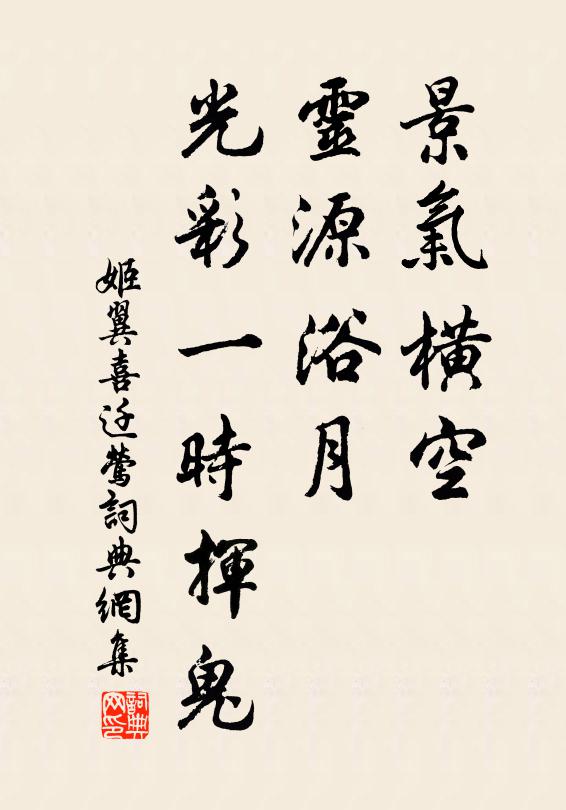 景氣橫空
靈源浴月
光彩一時揮鬼
姬翼喜迁鶯詞典網集
詞典网印